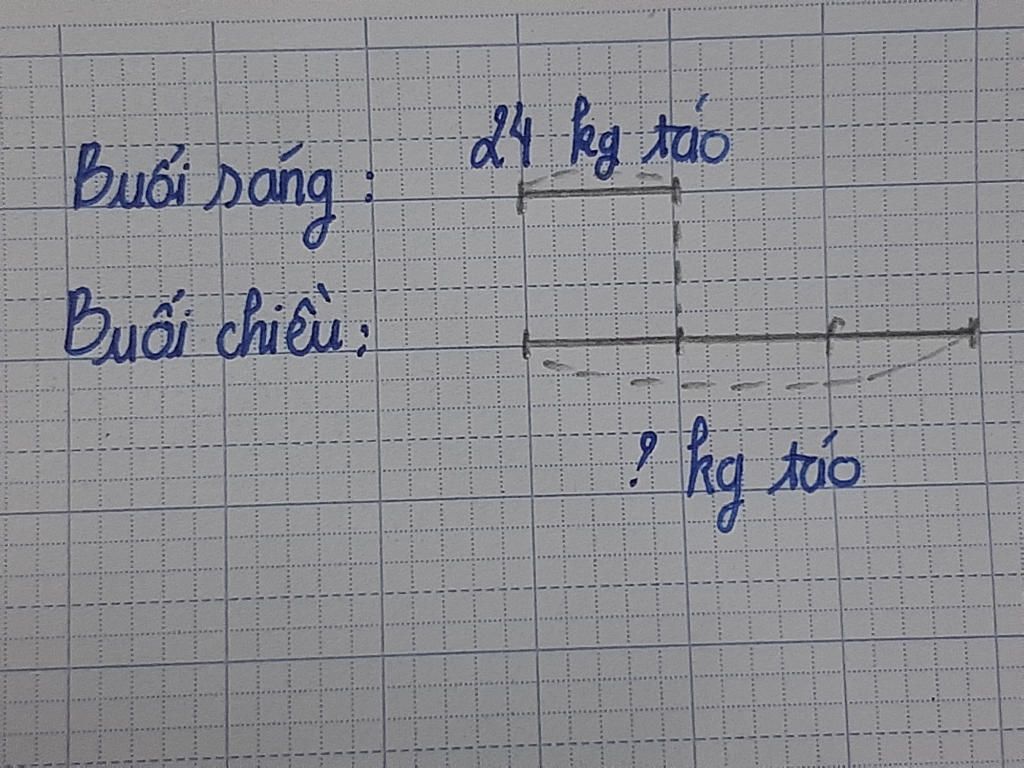 24 kg táo
Buổi sáng:
Buổi chiều:
? kg táo